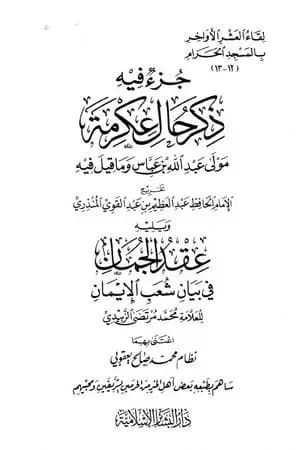 لقاء العشر الأواخر
بالمسجد الحرام
(١٢-١٣)
جزء فيه
ذكر حال عكرمة
مولى عبد الله بن عباس وما قيل فيه
تخريج
الإمام الحافظ عبد العظيم بن عبد القوي المنذري
ويليه
عقد الجمان
في بيان شعب الإيمان
للعلامة محمد مرتضى الزبيدي
اعتنى بهما
نظام محمد صالح يعقوبي
ساهم بطبعه بعض أهل الخير من الحرمين الشريفين ومحبيهم
دار البشائر الإسلامية